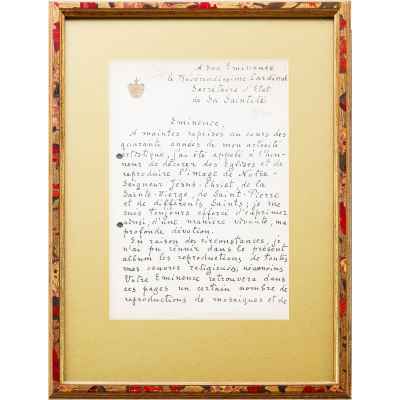 A Son Eminence
le Reverendissime Cardinal
Secretaire d'Etat
de Sa Sainteté
Eminence,
A maintes reprises au cours des
quarante années de mon activité
artistique, j'ai été appelé à l'hon-
neur de décorer des Eglises et de
reproduire l'image de Notre-
Seigneur Jesus-Christ, de la
Sainte-Vierge, de Saint-Pierre
et de différents Saints; je me
suis toujours efforcé d'exprimer
ainsi, d'une manière vivante, ma
profonde dévotion.
En raison des circonstances, je
n'ai pu réunir dans le présent
album les reproductions de toutes
mes oeuvres religieuses, neanmoins
Votre Eminence retrouvera dans
ces pages un certain nombre de
reproductions de mosaïques et de